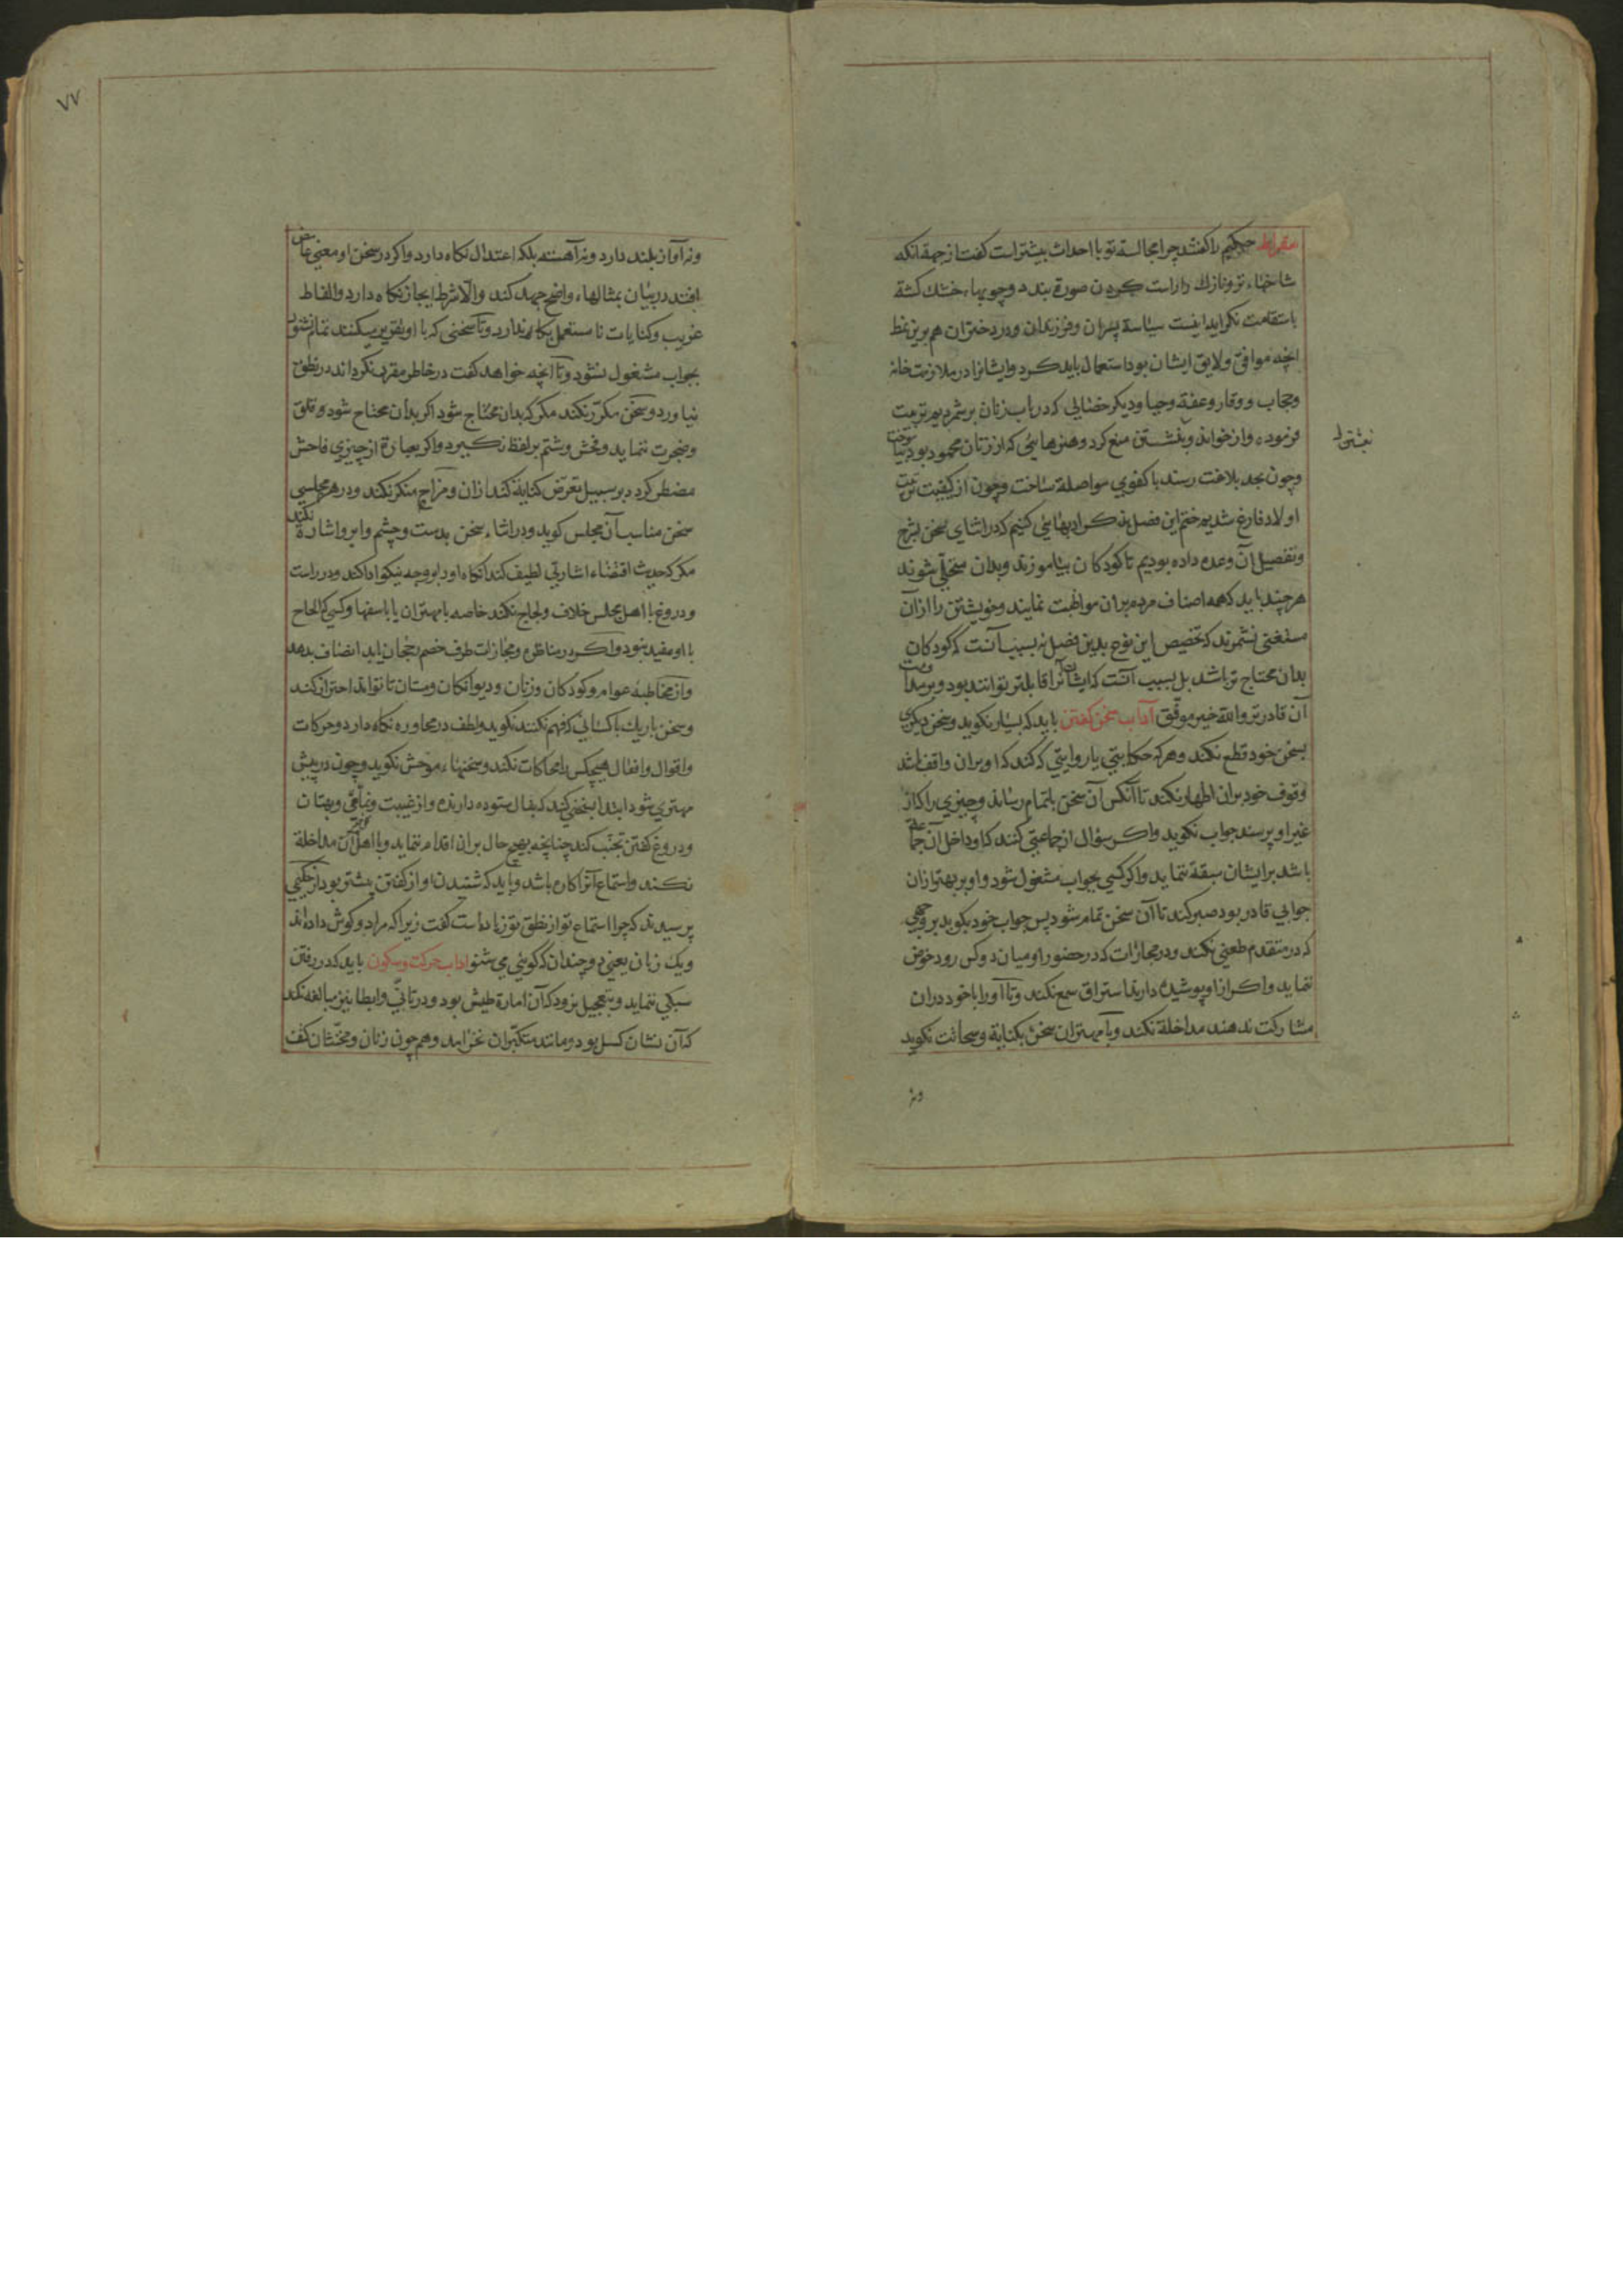 سقراط حکیم را گفتند چرا مجالسة تو با احداث بیشتر است گفت از جهة انکه
شاخهاء تر و نازك را راست کردن صورة بندد و چوبهاء خشك کشته
باستقامت نکراید اینست سیاسة پسران و فرزندان و در دختران هم برین نمط
انچه موافق و لایق ایشان بود استعمال باید کرد و ایشانرا در ملازمت خانه
و حجاب و وقار و عفة و حیا و دیکر خصالی که در باب زنان برشمردیم تربیت
فرمود و از خواندن و نبشتن منع کرد و هنرهایئی که از زنان محمود بود بیاموخت
و چون بحد بلاغت رسند با کفوی مواصلة ساخت و چون از کیفیت تربیت
اولاد فارغ شدیم ختم این فصل بذکر ادبهایی کنیم که در اثنای سخن بشرح
و تفصیل آن وعده داده بودیم تا کودکان بیاموزند و بدان متحلی شوند
هر چند باید که همه اصناف مردم بران مواظبت نمایند و خویشتن را ازان
مستغنی نشمرند که تخصیص این نوع بدین فصل نه بسبب آنست که کودکان
بدان محتاج تر باشند بل بسبب آنست که ایشان آنرا قابلتر توانند بود و بر مداومت
آن قادرتر والله خیر موفق آداب سخن کفتن باید که بسیار نکوید و سخن دیکری
بسخن خود قطع نکند و هر که حکایتی یا روایتی که کند که او بران واقف باشد
وقوف خود بران اظهار نکند تا آنکس آن سخن باتمام رساند و چیزی را که از
غیر او پرسند جواب نکوید و اکر سؤال از جماعتی کنند که او داخل آن جماعة
باشد بر ایشان سبقة ننماید و اکر کسی بجواب مشغول شود و او بر بهتر ازان
جوابی قادر بود صبر کند تا آن سخن تمام شود پس جواب خود بکوید بر وجهی
که در متقدم طعنی نکند و در مجارات که در حضور او میان دو کس رود خوض
ننماید و اکر از او پوشیده دارند استراق سمع نکند و تا او را با خود دران
مشارکت ندهند مداخلة نکند و با مهتران سخن بکنایة نکوید
ونه
ونه آواز بلند دارد و نه آهسته بلکه اعتدال نکاه دارد و اکر در سخن او معنی غامض
افتد در بیان بمثالهاء واضح جهد کند والّا شرط ایجاز نکاه دارد و الفاظ
غریب و کنایات نا مستعمل بکار ندارد و تا سخنی که با او تقریر میکنند تمام نشود
بجواب مشغول نشود و تا آنچه خواهد کفت در خاطر مقرر نکرداند در نطق
نیاورد و سخن مکرّر نکند مکر که بدان محتاج شود اکر بدان محتاج شود و قلق
و ضجرت ننماید و فحش و شتم بر لفظ نکیرد و اکر بعبارة از چیزی فاحش
مضطر کردد بر سبیل تعریض کنایة کند ازان و مزاح منکر نکند و در هر مجلسی
سخن مناسب آن مجلس کوید و در اثناء سخن بدست و چشم و ابرو اشارة نکند
مکر که حدیث اقتضاء اشارتی لطیف کند آنکاه اورا بوجه نیکو ادا کند و در راست
و دروغ با اهل مجلس خلاف و لجاج نکند خاصه با مهتران یا با سفها و کسی که الحاح
با او مفید نبود و اکر در مناظره و مجارات طرف خصم رجحان یابد انصاف بدهد
و از مخاطبة عوام و کودکان و زنان و دیوانکان و مستان تا تواند احتراز کند
و سخن باریك با کسانی که فهم نکنند نکوید و لطف در محاوره نکاه دارد و حرکات
و اقوال و افعال هیچکس را محاکات نکند و سخنهاء موحش نکوید و چون در پیش
مهتری شود ابتدا بسخنی کند که بفال ستوده دارند و از غیبت و نمّامی و بهتان
و دروغ کفتن تجنّب کند چنانچه بهیچ حال بران اقدام ننماید و با اهل آن مداخلة
نکند و استماع آنرا کاره باشد و باید که شنیدن او از کفتن بیشتر بود از حکیمی
پرسیدند که چرا استماع تو از نطق تو زیاد است کفت زیراکه مرا دو کوش داده اند
و یك زبان یعنی دو چندان که کوئی می شنو آداب حرکت و سکون باید که در رفتن
سبکی ننماید و بتعجیل نرود که آن امارة طیش بود و در تأنّی و ابطا نیز مبالغه نکند
که آن نشان کسل بود و مانند متکبّران نخرامد و هم چون زنان و مخنّثان کتف
۷۷